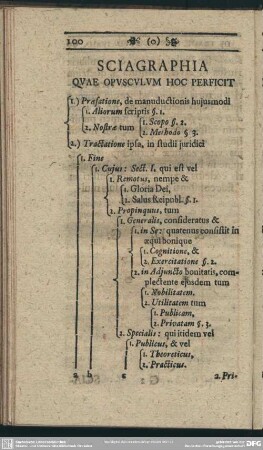 100 (o)
SCIAGRAPHIA
QVAE OPVSCVLVM HOC PERFICIT
1.) Præfatione, de manuductionis hujusmodi
1. Aliorum scriptis §. 1.
2. Nostræ tum
1. Scopo §. 2.
2. Methodo § 3.
2.) Tractatione ipsa, in studii juridici
1. Fine
1. Cujus: Sect. I. qui est vel
1. Remotus, nempe &
1. Gloria Dei,
2. Salus Reipubl. §. 1.
2. Propinquus, tum
1. Generalis, consideratus &
1. in Se: quatenus consistit in
æqui bonique
1. Cognitione, &
2. Exercitatione §. 2.
2. in Adjuncto bonitatis, com-
plectente ejusdem tum
1. Nobilitatem,
2. Utilitatem tum
1. Publicam,
2. Privatam §. 3.
2. Specialis: qui itidem vel
1. Publicus, & vel
1. Theoreticus,
2. Practicus.
a b c 2. Pri-